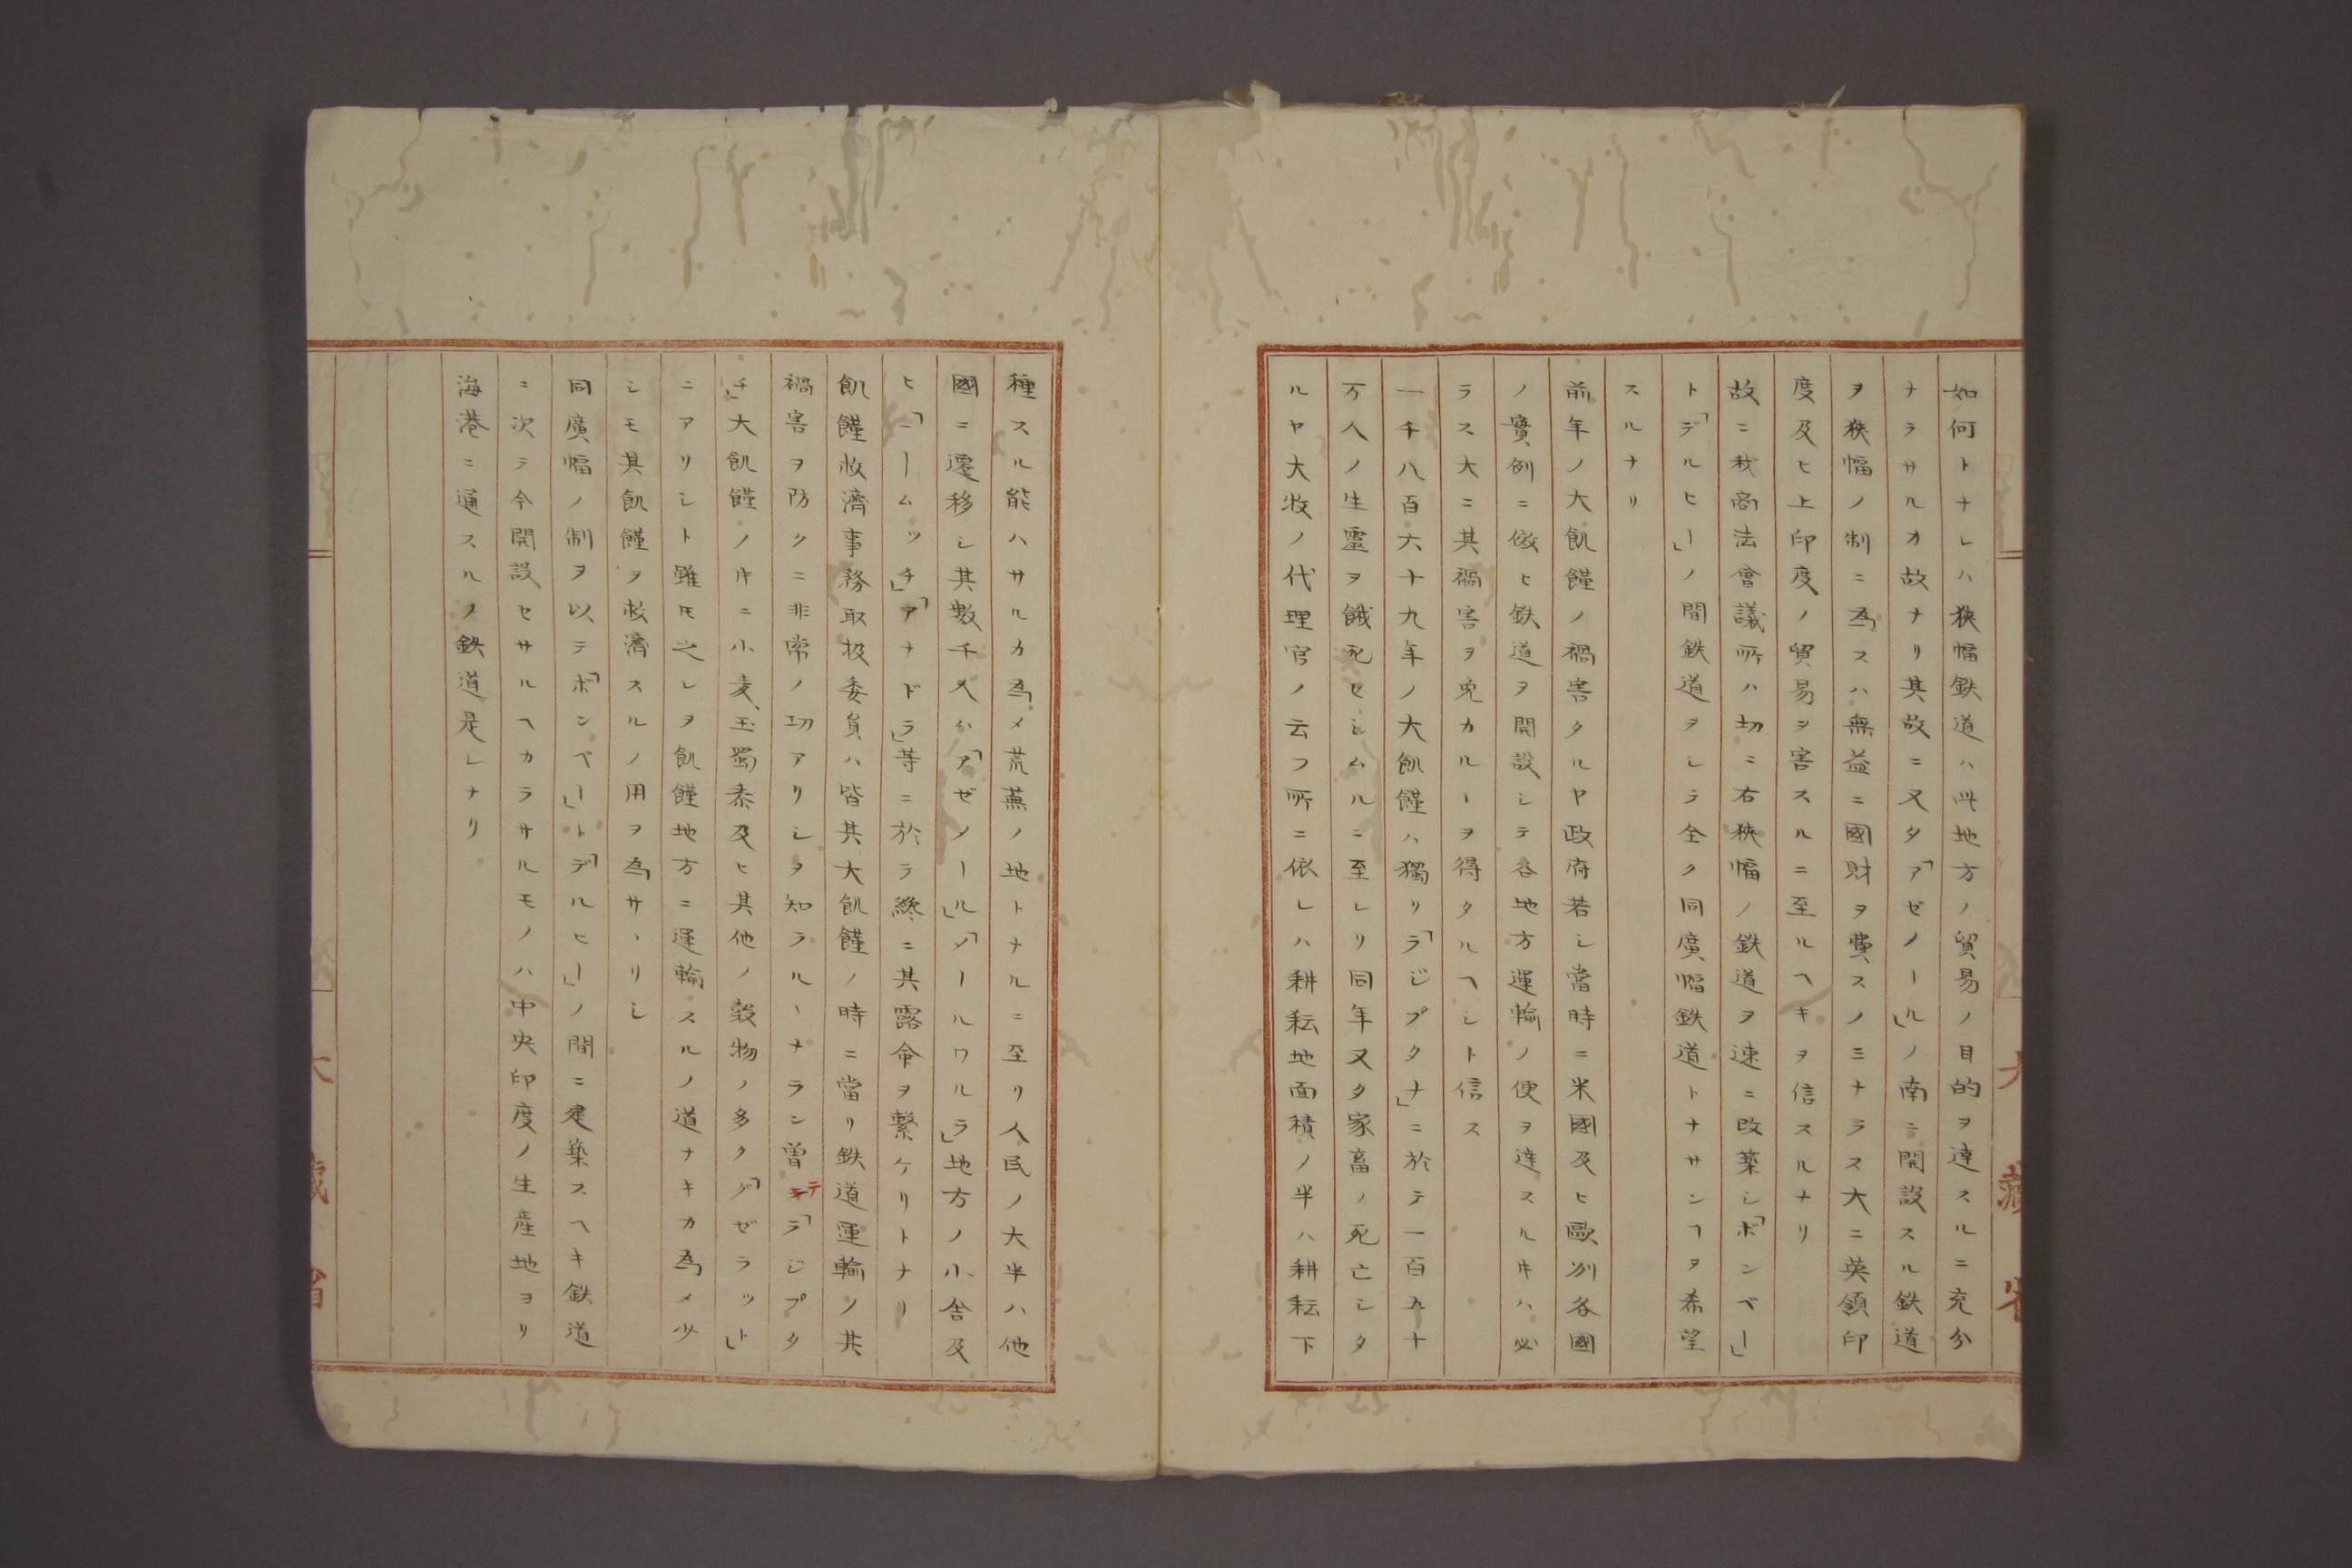 如何トナレハ狹幅鉄道ハ此地方ノ貿易ノ目的ヲ達スルニ充分
ナラサルカ故ナリ其故ニ又タ「アゼノール」ノ南ニ開設スル鉄道
ヲ狹幅ノ制ニ為スハ無益ニ國財ヲ費スノミナラス大ニ英領印
度及ヒ上印度ノ貿易ヲ害スルニ至ルヘキヲ信スルナリ
故ニ我商法會議所ハ切ニ右狹幅ノ鉄道ヲ速ニ改築シ「ボンベー」
ト「デルヒー」ノ間鉄道ヲシテ全ク同廣幅鉄道トナサンヿヲ希望
スルナリ
前年ノ大飢饉ノ禍害タルヤ政府若シ當時ニ米國及ヒ歐洲各國
ノ實例ニ倣ヒ鉄道ヲ開設シテ各地方運輸ノ便ヲ達スルキハ必
ラス大ニ其禍害ヲ免カルヽヲ得タルヘシト信ス
一千八百六十九年ノ大飢饉ハ獨リ「ラジプタナ」ニ於テ一百五十
万人ノ生靈ヲ餓死セシムルニ至レリ同年又タ家畜ノ死亡シタ
ルヤ大牧ノ代理官ノ云フ所ニ依レハ耕耘地面積ノ半ハ耕耘下
種スル能ハサルカ為メ荒蕪ノ地トナルニ至リ人民ノ大半ハ他
國ニ遷移シ其數千人分「アゼノール」「メールワルラ」地方ノ小舎及
ヒ「ニームッチ」「アナドラ」等ニ於テ終ニ其露命ヲ繫ケリトナリ
飢饉救濟事務取扱委員ハ皆其大飢饉ノ時ニ當リ鉄道運輸ノ其
禍害ヲ防クニ非常ノ功アリシヲ知ラルヽナラン曽テ「ラジプタ
チ」大飢饉ノキニ小麦、玉蜀黍及ヒ其他ノ穀物ノ多ク「グゼラット」
ニアリシト雖モ之レヲ飢饉地方ニ運輸スルノ道ナキカ為メ少
シモ其飢饉ヲ救濟スルノ用ヲ為サヽリシ
同廣幅ノ制ヲ以テ「ボンベー」ト「デルヒー」ノ間ニ建築スヘキ鉄道
ニ次テ今開設セサルヘカラサルモノハ中央印度ノ生産地ヨリ
海港ニ通スルノ鉄道是レナリ
大藏省